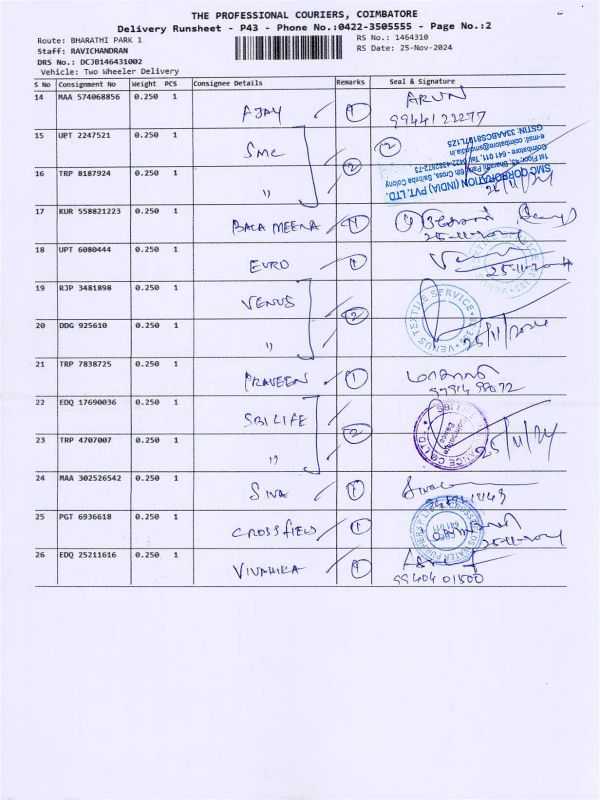 THE PROFESSIONAL COURIERS, COIMBATORE
Delivery Runsheet - P43 - Phone No.:0422-3505555 - Page No.:2
Route: BHARATHI PARK 1
RS No.: 1464310
Staff: RAVICHANDRAN
RS Date: 25-Nov-2024
DRS No.: DCJB146431002
Vehicle: Two Wheeler Delivery
S No Consignment No Weight PCS Consignee Details Remarks Seal & Signature
14 MAA 574068856 0.250 1 AJAY 1 ARUN
9944122277
15 UPT 2247521 0.250 1 SMC 2
16 TRP 8187924 0.250 1 " 2
SMC CORPORATION (INDIA) PVT. LTD.
17 KUR 558821223 0.250 1 BALA MEENA 1
25-11-2024
18 UPT 6080444 0.250 1 EURO 1
25-11-2024
19 RJP 3481898 0.250 1 VENUS 2 VENUS TEXTILE SERVICE
20 DDG 925610 0.250 1 " 25/11/2024
21 TRP 7838725 0.250 1 PRAVEEN 1
22 EDQ 17690036 0.250 1 SBI LIFE 2
23 TRP 4707007 0.250 1 " 25/11/24
24 MAA 302526542 0.250 1 SIVA 1
25 PGT 6936618 0.250 1 CROSSFIELD 1
25-11-2024
26 EDQ 25211616 0.250 1 VIVAHIKA 1
99404 01500